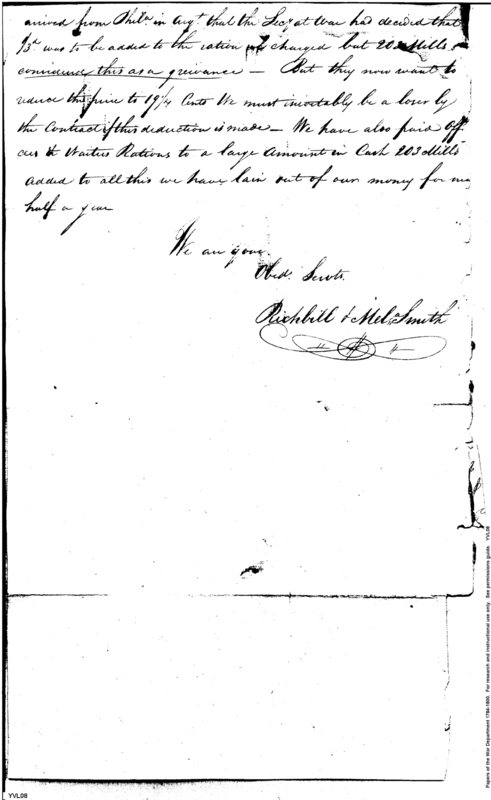 arrived from Phila in Augt that the Secy at War had decided that
/3d was to be added to the ration we charged but 203 Mills &
considered this as a greivance — But they now want to
reduce the price to 19 1/4 Cents We must inevitably be a loser by
the Contract if this deduction is made — We have also paid off
cers & Waiters Rations to a large Amount in Cash 203 Mills
added to all this we have lain out of our money for
half a year
We are your
Obedt. Servts.
Richbill & Mel. Smith
YVL08
Papers of the War Department 1784-1800. For research and instructional use only. See permissions guide. YVL08